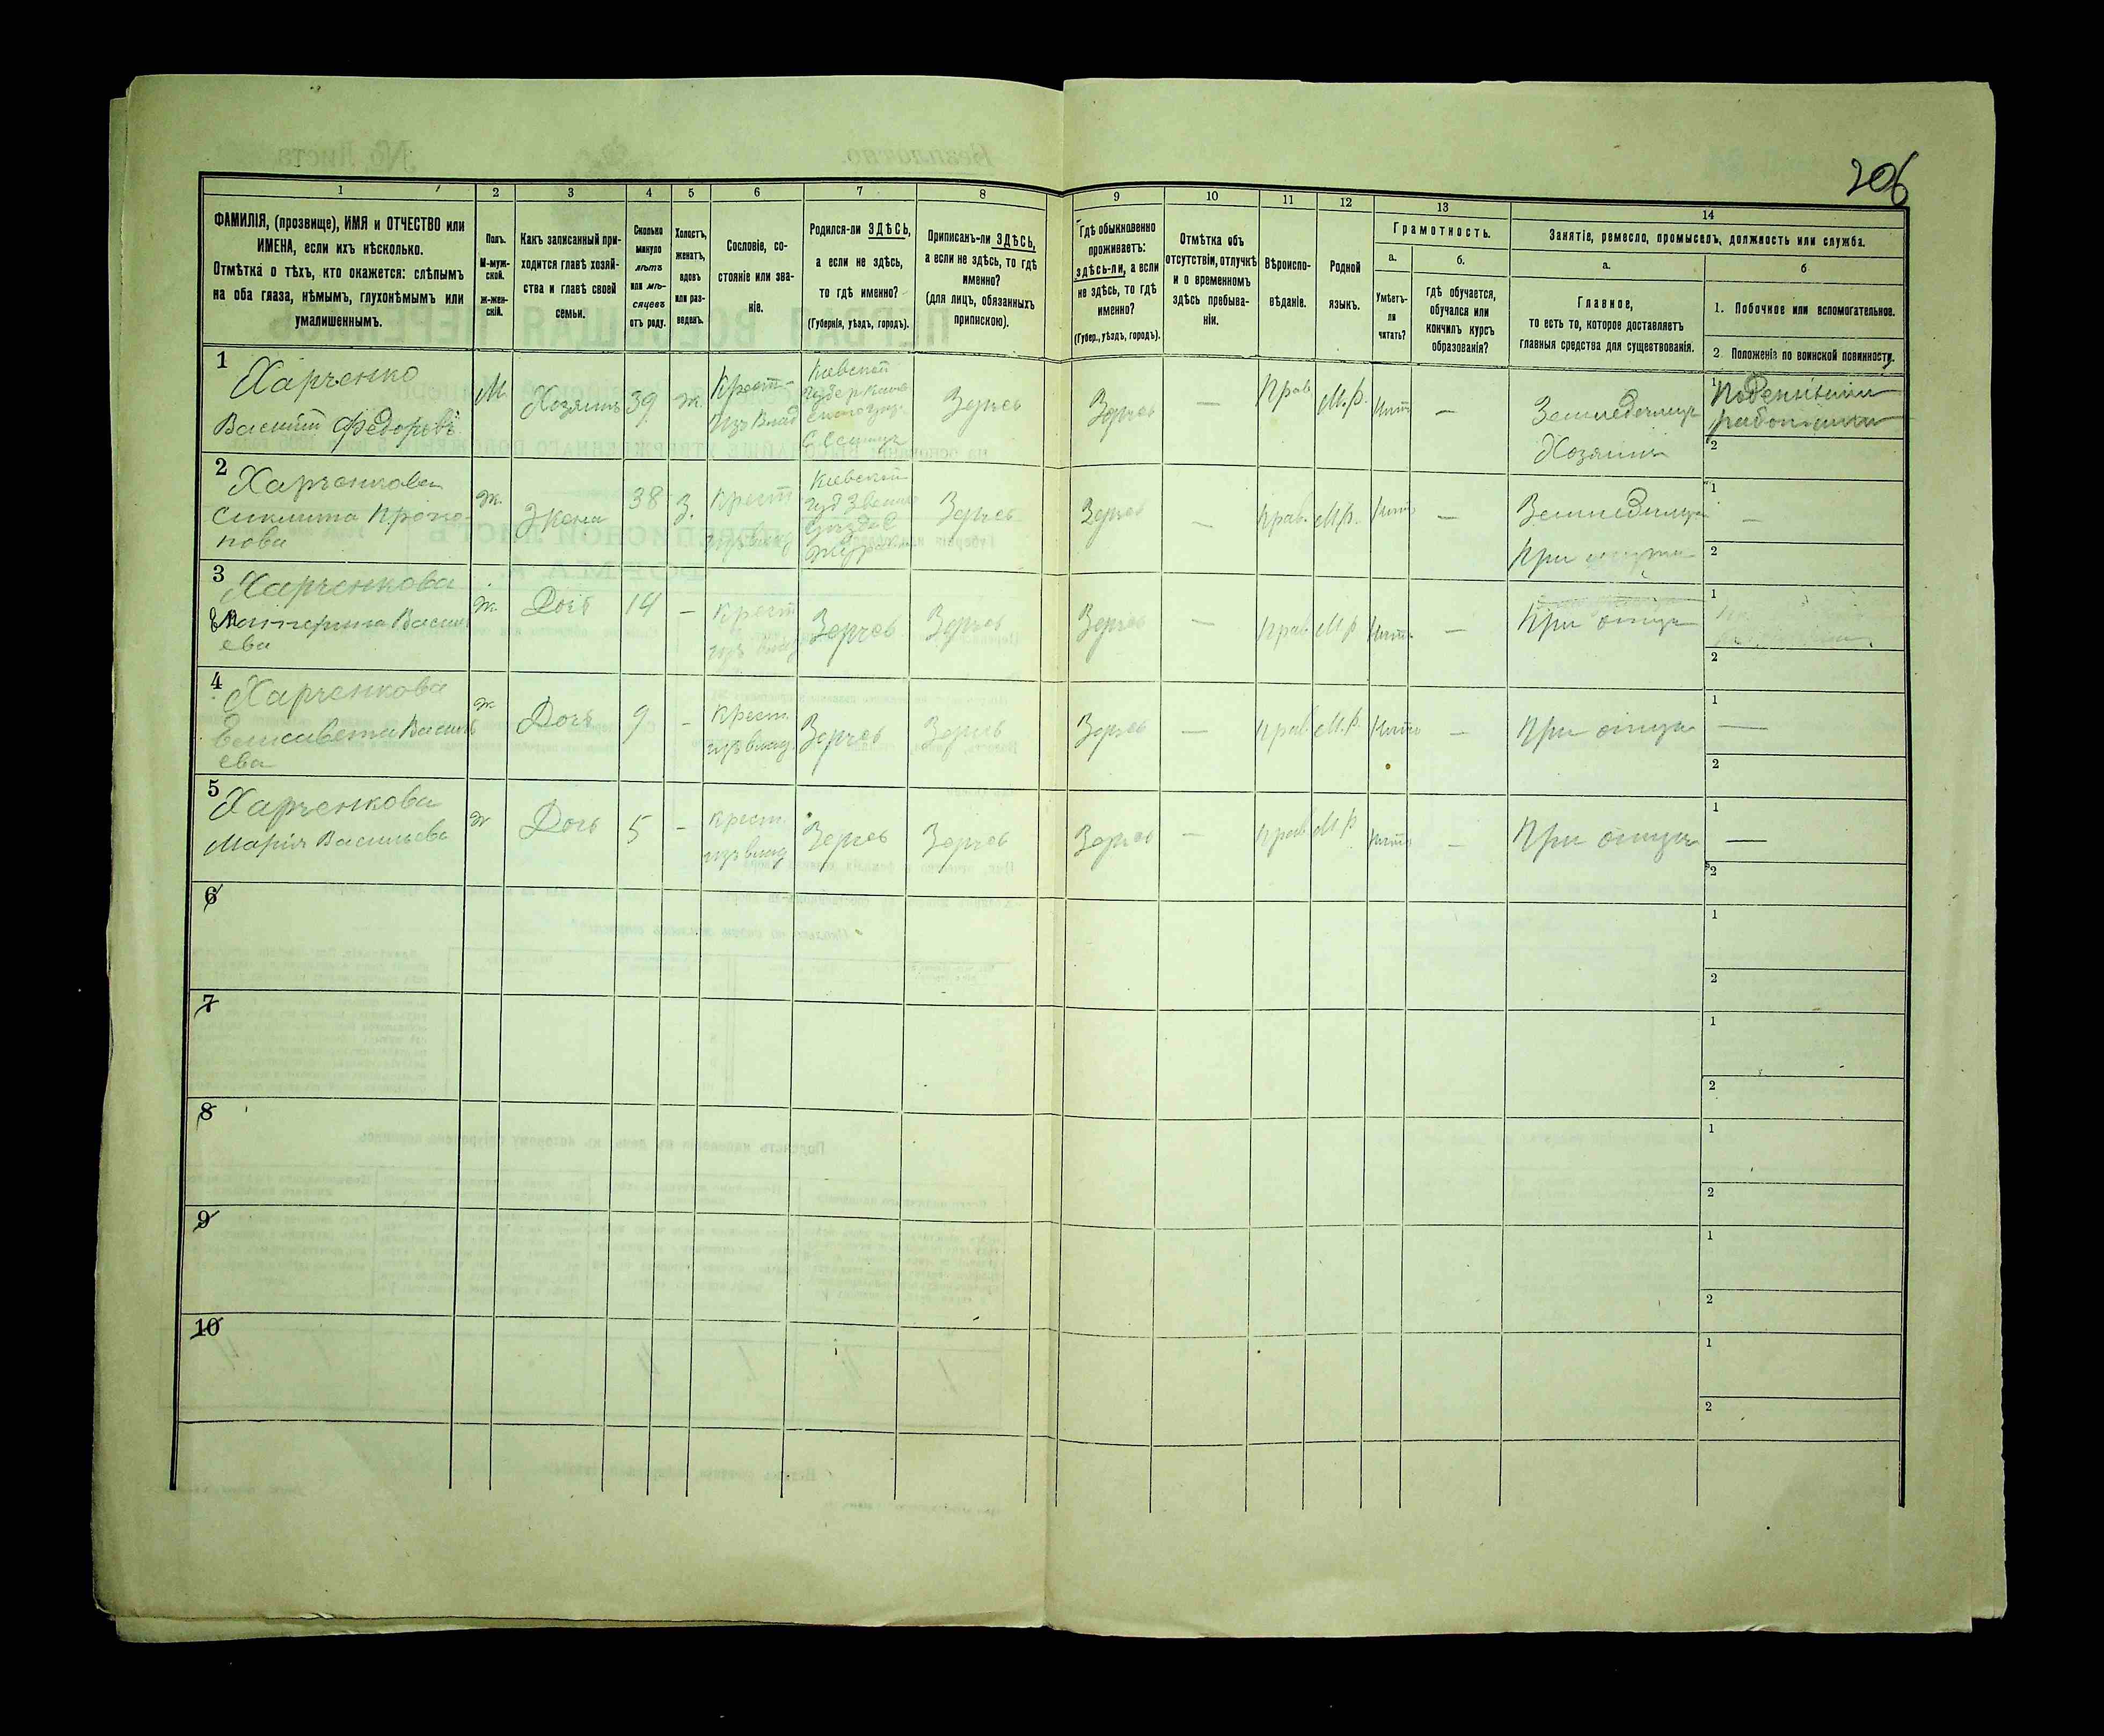 206
1 2 3 4 5 6 7 8 9 10 11 12 13 14
ФАМИЛІЯ, (прозвище), ИМЯ и ОТЧЕСТВО или
ИМЕНА, если ихъ нѣсколько.
Отмѣтка о тѣхъ, кто окажется: слѣпымъ
на оба глаза, нѣмымъ, глухонѣмымъ или
умалишеннымъ.
Полъ.
М-муж-
ской.
ж-жен-
скій.
Какъ записанный при-
ходится главѣ хозяй-
ства и главѣ своей
семьи.
Сколько
минуло
лѣтъ
или мѣ-
сяцевъ
отъ роду.
Холостъ,
женатъ,
вдовъ
или раз-
веденъ.
Сословіе, со-
стояніе или зва-
ніе.
Родился-ли ЗДѢСЬ,
а если не здѣсь,
то гдѣ именно?
(Губернія, уѣздъ, городъ).
Приписанъ-ли ЗДѢСЬ,
а если не здѣсь, то гдѣ
именно?
(для лицъ, обязанныхъ
припискою).
Гдѣ обыкновенно
проживаетъ:
здѣсь-ли, а если
не здѣсь, то гдѣ
именно?
(Губер., уѣздъ, городъ).
Отмѣтка объ
отсутствіи, отлучкѣ
и о временномъ
здѣсь пребыва-
ніи.
Вѣроиспо-
вѣданіе.
Родной
языкъ.
Грамотность.
а.
Умѣетъ-
ли
читать?
б.
Гдѣ обучается,
обучался или
кончилъ курсъ
образованія?
Занятіе, ремесло, промыселъ, должность или служба.
а.
Главное,
то есть то, которое доставляетъ
главныя средства для существованія.
б
1. Побочное или вспомогательное.
2. Положеніе по воинской повинности.
1
Харченко
Василій Федоровъ
М.
Хозяинъ
39
ж.
Крест-
изъ Влад
Кіевской
Здѣсь
Здѣсь
—
Прав
М.р.
Нѣтъ
—
Земледѣлецъ
Хозяинъ
1
2
2
Харченкова
Прохо-
пова
ж.
Жена
38
З.
Крест
изъ влад
Кіевской
Здѣсь
Здѣсь
—
Прав.
М.р.
Нѣтъ
—
При
1
—
2
3
Харченкова
Екатерина Василь
ева
ж.
Дочь
14
—
Крест
изъ влад
Здѣсь
Здѣсь
Здѣсь
—
Прав
М.р
Нѣтъ
—
При отцѣ
1
2
4
Харченкова
Елисавета Василь
ева
ж
Дочь
9
—
Крест.
изъ влад.
Здѣсь
Здѣсь
Здѣсь
—
Прав
М.р.
Нѣтъ
—
При отцѣ
1
—
2
5
Харченкова
Марія Васильева
ж
Дочь
5
—
Крест.
изъ влад
Здѣсь
Здѣсь
Здѣсь
—
Прав
М.р
Нѣтъ
—
При отцѣ
1
—
2
6
1
2
7
1
2
8
1
2
9
1
2
10
1
2